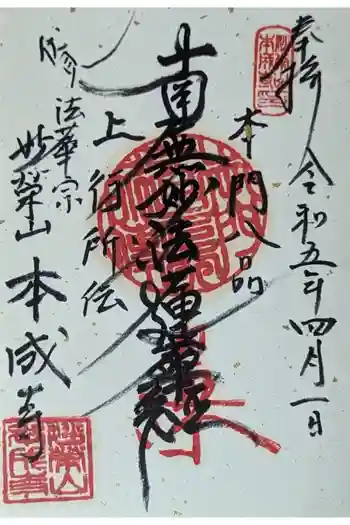 奉拝 令和五年四月一日
本門八品
南無妙法蓮華経
上行所伝
法華宗
妙栄山
本成寺